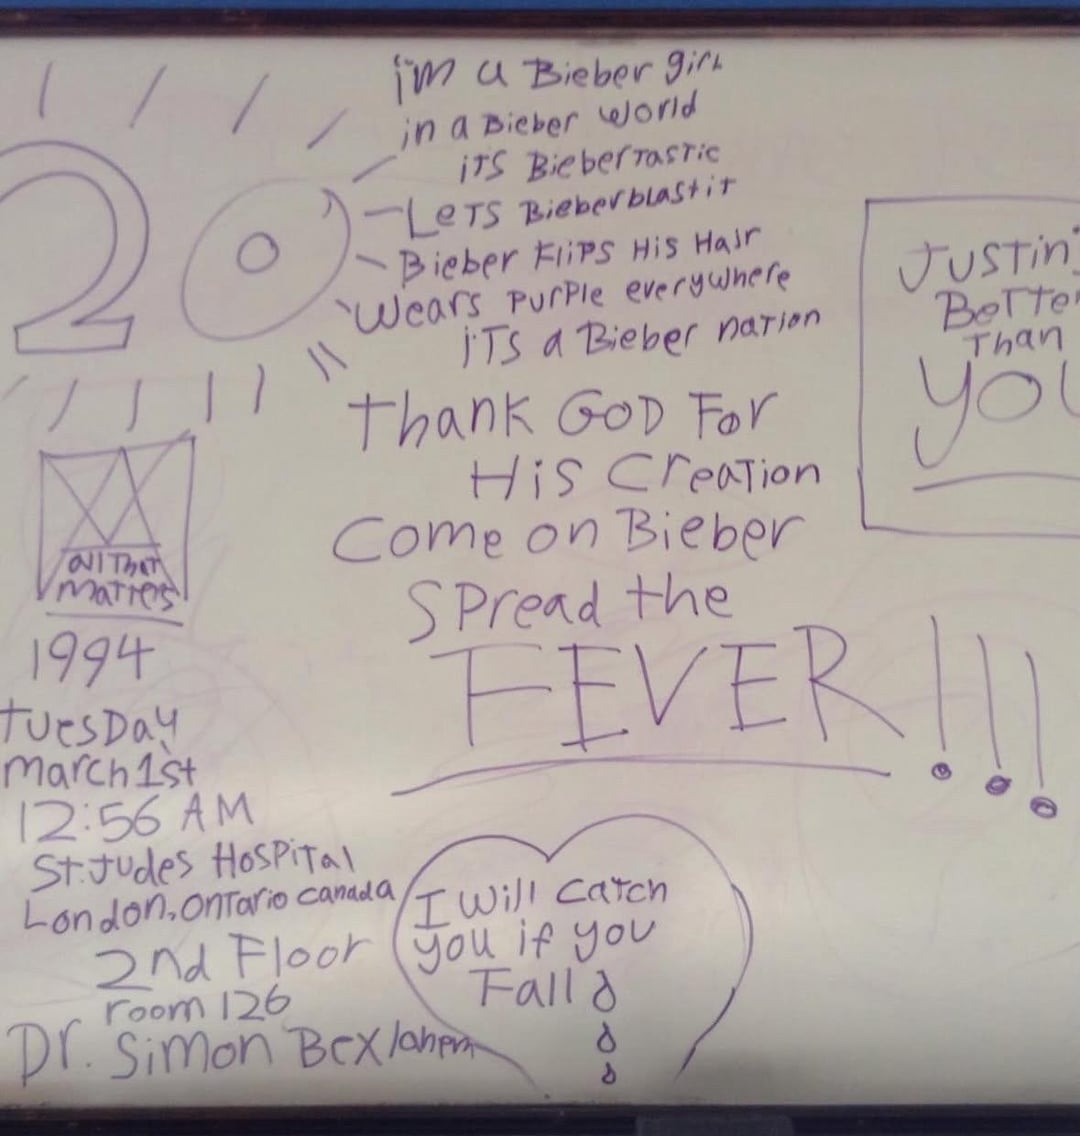 20
i'm a Bieber girl
in a Bieber world
iTS BieberTasTic
LeTS Bieberblastit
Bieber FliPS His Hair
Wears PurPle everywhere
iTs a Bieber naTion
Thank GOD For
His CreaTion
Come on Bieber
SPread the
FEVER!!!
JusTin's
BeTTer
Than
YOU
All ThaT
MaTTers
1994
TuesDay
March 1st
12:56 AM
St. Judes HosPiTal
London, OnTario Canada
2nd Floor
room 126
Dr. Simon
I will caTch
you if you
Fall